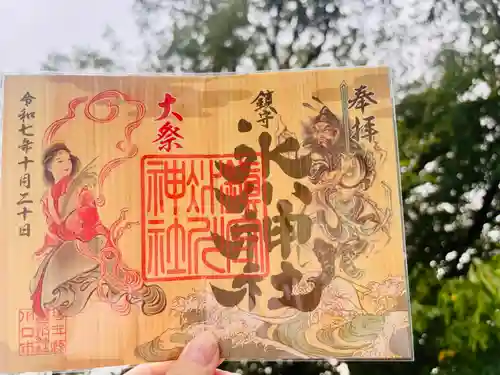 奉拝
鎮守
氷川神社
大祭
鎮守
氷川
神社
令和七年十月二十日